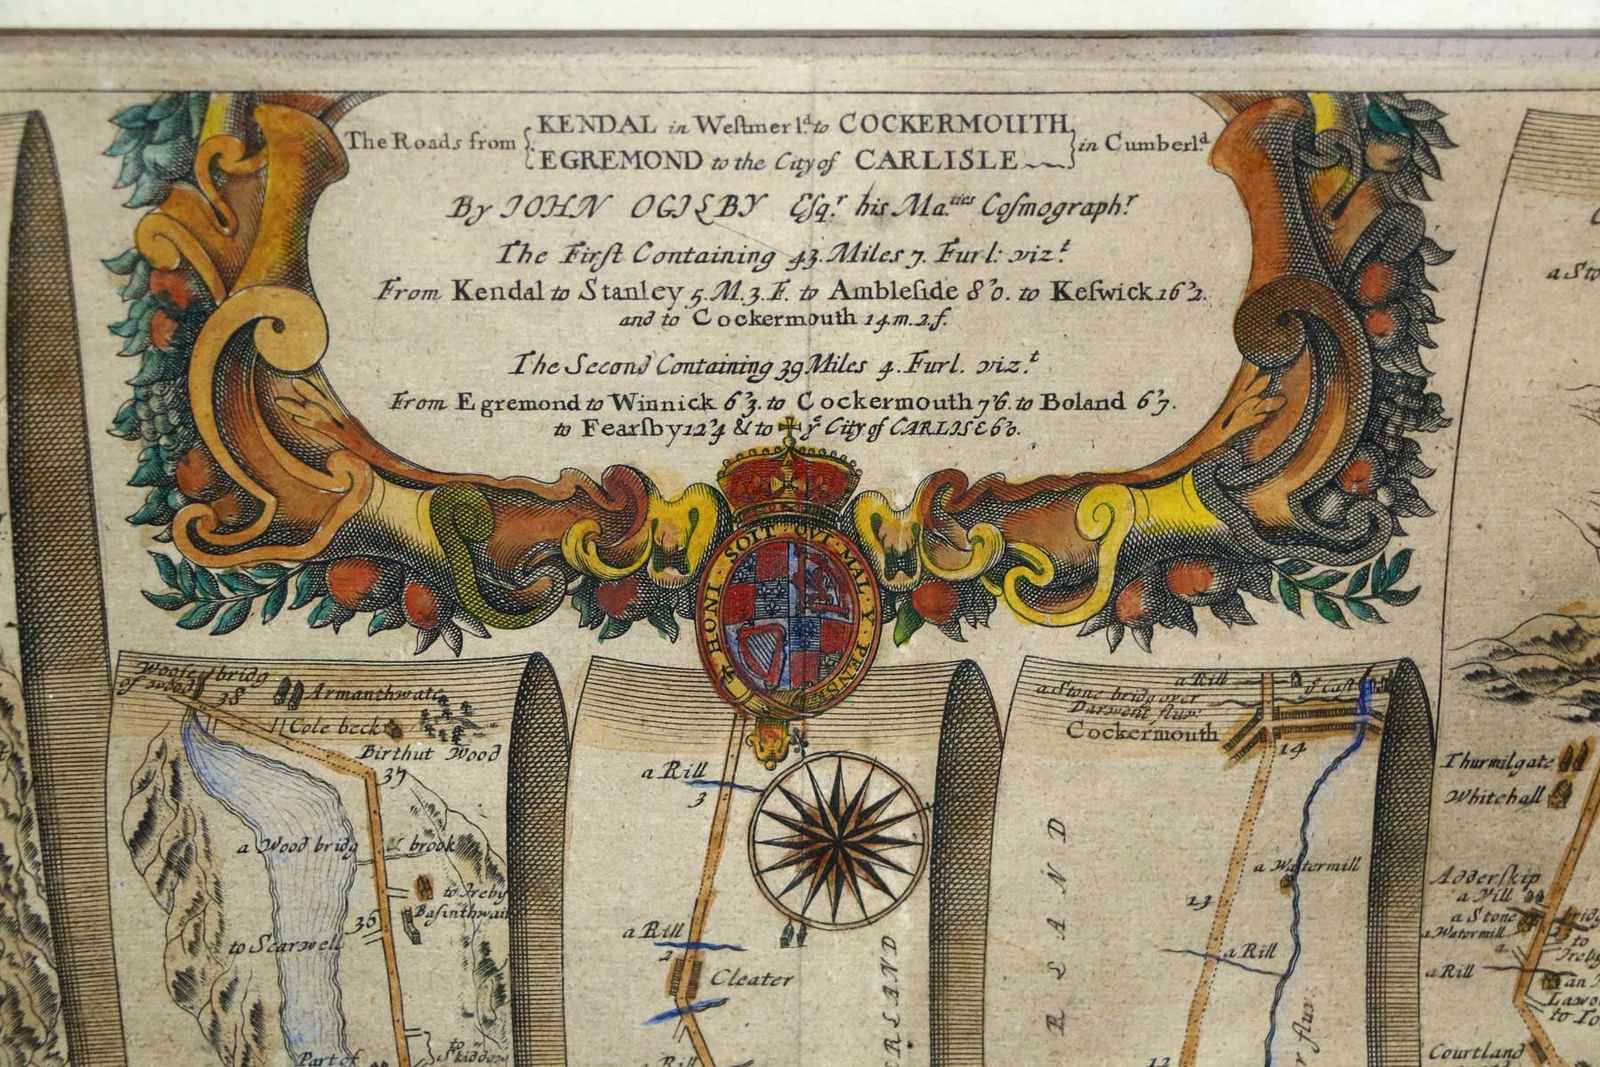 The Roads from { KENDAL in Westmerld. to COCKERMOUTH, } in Cumberld.
EGREMOND to the City of CARLISLE
By IOHN OGILBY Esqr. his Ma.ties Cosmographr.
The First Containing 43. Miles 7. Furl: vizt.
From Kendal to Stanley 5. M. 3. F. to Ambleside 8'0. to Keswick 16'2.
and to Cockermouth 14. m. 2. f.
The Second Containing 39 Miles 4. Furl. vizt.
From Egremond to Winnick 6'3. to Cockermouth 7'6. to Boland 6'7.
to Fearsby 12'4 & to ye City of CARLISLE 6'0.
HONI · SOIT · QVI · MAL · Y · PENSE
bridg
of wood
38
Armanthwate
Cole beck
Birthut Wood
37
a Wood bridg & brook
to Ireby
Basinthwait
36
to Scarwell
to
Skiddow
Part of
a Rill
3
a Rill
2
Cleater
a Rill
ERLAND
a Rill
ye Cast
a Stone bridg over
Darwent fluv
Cockermouth
14
RLAND
a Watermill
13
a Rill
r fluv
12
a Sto
Thurmilgate
Whitehall
Adderskip
a Vill
a Stone bridg
a Watermill
to
Ireby
a Rill
an
Lawo
to To
Courtland